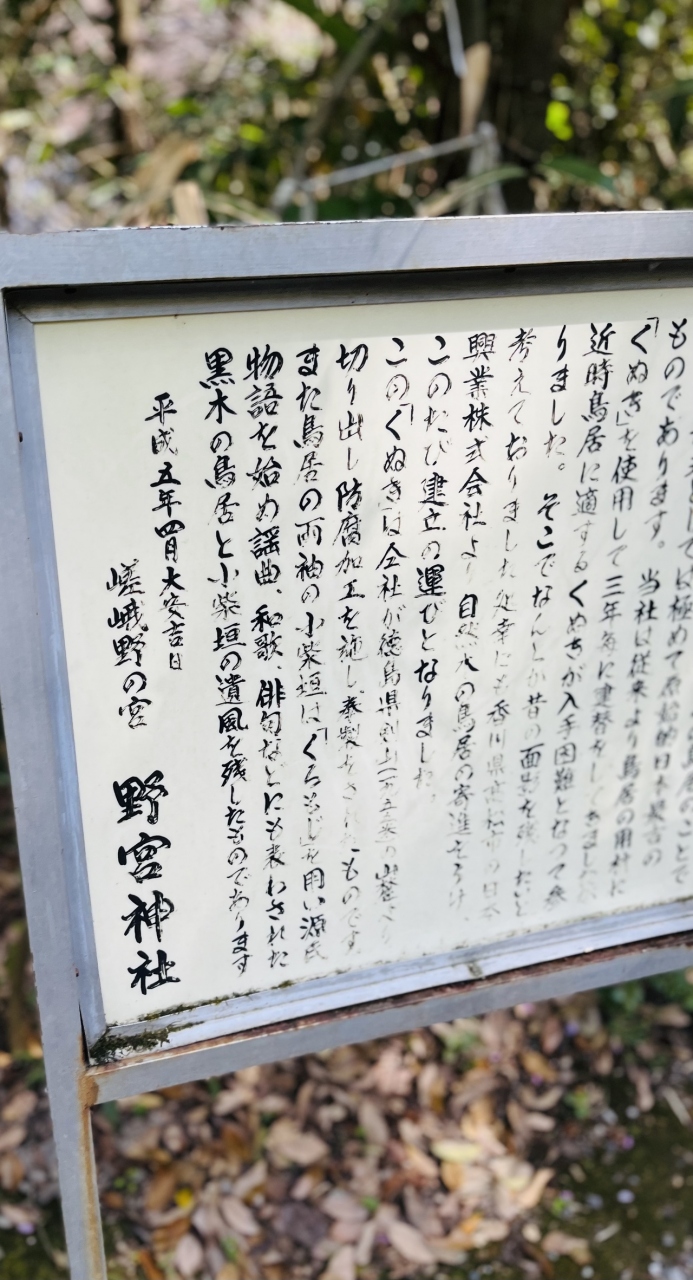 ものであります。当社は従来より鳥居の用材に
「くぬぎ」を使用して三年毎に建替をしてきました
近時鳥居に適するくぬぎが入手困難となって参
りました。そこでなんとか昔の面影を残したいと
考えておりました処幸にも香川県高松市の日本
興業株式会社より自然木の鳥居の寄進をうけ
このたび建立の運びとなりました。
この「くぬぎ」は仝社が徳島県剣山
切り出し防腐加工を施し奉製をされたものです。
また鳥居の両袖の小柴垣は「くろもじ」を用い源氏
物語を始め謡曲、和歌、俳句などにも表わされた
黒木の鳥居と小柴垣の遺風を残したものであります
平成五年四月大安吉日
嵯峨野の宮
野宮神社